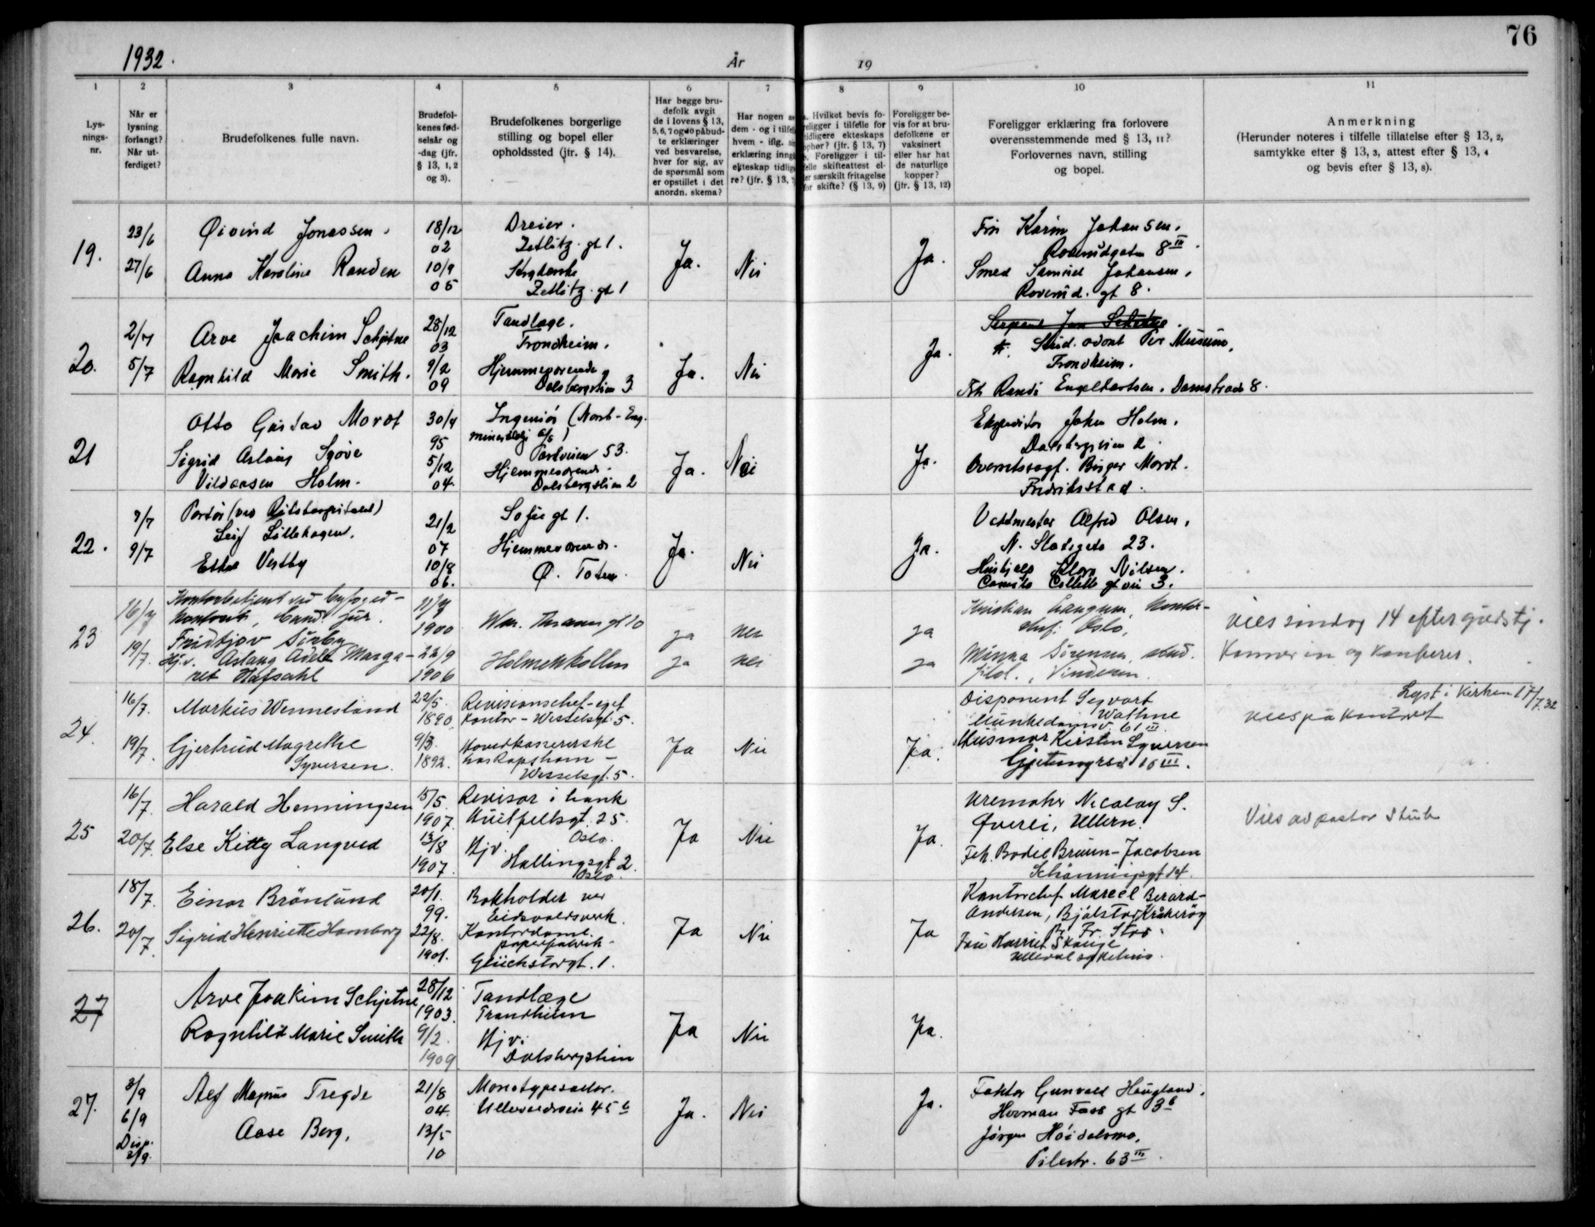 76
1932.
År
19
1
2
3
4
5
6
7
8
9
10
11
Lysningsnr.
Når er lysning forlangt? Når utferdiget?
Brudefolkenes fulle navn.
Brudefolkenes fødselsår og -dag (jfr. § 13, 1, 2 og 3).
Brudefolkenes borgerlige stilling og bopel eller opholdssted (jfr. § 14).
Har begge brudefolk avgitt de i lovens § 13, 5, 6, 7 og 10 påbudte erklæringer ved besvarelse, hver for sig, av de spørsmål som er opstillet i det anordn. skema?
Har nogen
dem - og i
hvem - iflg.
erklæring
ekteskap
re? (jfr. § 13,
Hvilket bevis fo-
religger i tilfelle for
tidligere ekteskaps
ophør? (jfr. § 13, 7)
Foreligger i til-
felle skifteattest el-
ler særskilt fritagelse
for skifte? (§ 13, 9)
Foreligger bevis for at brudefolkene er vaksinert eller har hat de naturlige kopper? (jfr. § 13, 12)
Foreligger erklæring fra forlovere overensstemmende med § 13, 11? Forlovernes navn, stilling og bopel.
Anmerkning
(Herunder noteres i tilfelle tillatelse efter § 13, 2, samtykke efter § 13, 3, attest efter § 13, 4 og bevis efter § 13, 8).
19.
23/6
27/6
Øivind Jonassen.
Anna Karoline Randen
18/12
02
10/9
05
Dreier.
Zetlitz. gt 1.
Zetlitz. gt 1
Ja.
Nei
Ja.
Frú Karin Johansen.
8 III.
Smed Samuel Johansen.
gt 8.
20.
2/7
5/7
Arve Joachim Schjetne
Ragnhild Marie Smith.
28/12
03
9/2
09
Tandlæge.
Trondheim.
Hjemmeværende
Dalsbergstien 3
Ja.
Nei
Ja.
Stud. odont Per
Trondheim.
Frk Randi Engelbretsen. Damstræde 8.
21
Otto Gustav Mordt
Sigrid Aslaug
Holm.
30/4
95
5/12
04
Ingeniør (Norsk-Eng.
mineralolj A/S)
53.
Hjemmeværende.
Dalsbergstien 2
Ja.
Nei
Ja.
Ekspeditør Johan Holm.
Dalsbergstien 2
Overrettssagf. Birger Mordt.
Fredriksstad.
22.
7/7
9/7
Portør (ved Rikshospitalet)
Leif Lillehagen.
Vestby
21/2
07
10/8
06.
Sofie gt 1.
Hjemmeværende.
Ø. Toten.
Ja.
Nei
Ja.
Vaktmester Alfred Olsen.
N. Slotsgate 23.
Nilsen.
Camilla Colletts vei 3.
23
16/7
19/7.
Kontorbetjent ved byfoged-
kontoret, Cand. jur.
Fridtjov
Hj.v. Aslaug Adele Marga-
ret Hafsahl
11/
1900
22/9
1906
Wm. Thranes gt 10
Holmenkollen
ja
ja
nei
nei
ja
ja
Kristian Langum, kontor-
chef. Oslo,
Minna Sørensen, stud.
filol., Vinderen.
Vies søndag 14 efter gudstj.
og konferer.
24.
16/7.
19/7.
Markus Wennesland
Gjertrud Magrethe
Syversen.
22/5.
1890
9/3.
1892.
Revisionschef-eget
kontor - Wesselsgt. 5.
Hovedkassererske
-
Wesselsgt. 5.
Ja
Nei
Ja.
Disponent Segvart
Wathne
Munkedamsv. 61 II.
Husmor Kirsten Syversen
Gjetemyrsv 15 III.
Lyst i kirken 17/7.32
Vies på kontoret
25
16/7.
20/7.
Harald Henningsen
Else Kitty Langved
15/5.
1907.
13/8
1907.
Revisor i bank
Huitfeltsgt. 25.
Oslo.
Hjv.
Hallingsgt. 2.
Oslo
Ja
Nei
Ja.
Uremaker Nicolay S.
Øveri, Ullern.
Frk. Bodil Bruun-Jacobsen
Schønningsgt 14.
Vies av pastor Stub
26.
18/7.
20/7.
Einar Brönlund
Sigrid Henriette Hamborg
20/1.
99.
22/8.
1901.
Bokholder ved
Eidsvoldsverk.
Kontordame.
papirfabrik -
Glückstadgt. 1.
Ja
Nei
Ja
Kontorchef Marcel Berard-
Andersen, Kråkerøy
Fr. Stad.
Frú Harriet Skauge
Ullevål sykehus.
27
Arve Joakim Schjetne
Ragnhild Marie Smith
28/12
1903.
9/2.
1909
Tandlæge
Trondheim
Hjv.
Dalsbergstien
Ja
Nei
Ja.
27.
3/9
6/9
Disp.
2/9.
Alf Magnus Tregde
Aase Berg.
21/8
04.
13/5
10
Monotypesetter.
Ullevaalsveien 45 b
Ja.
Nei
Ja.
Faktor Gunvald Haugland.
Herman Foss gt 3 b
Jørgen
Pilestr. 63 III.